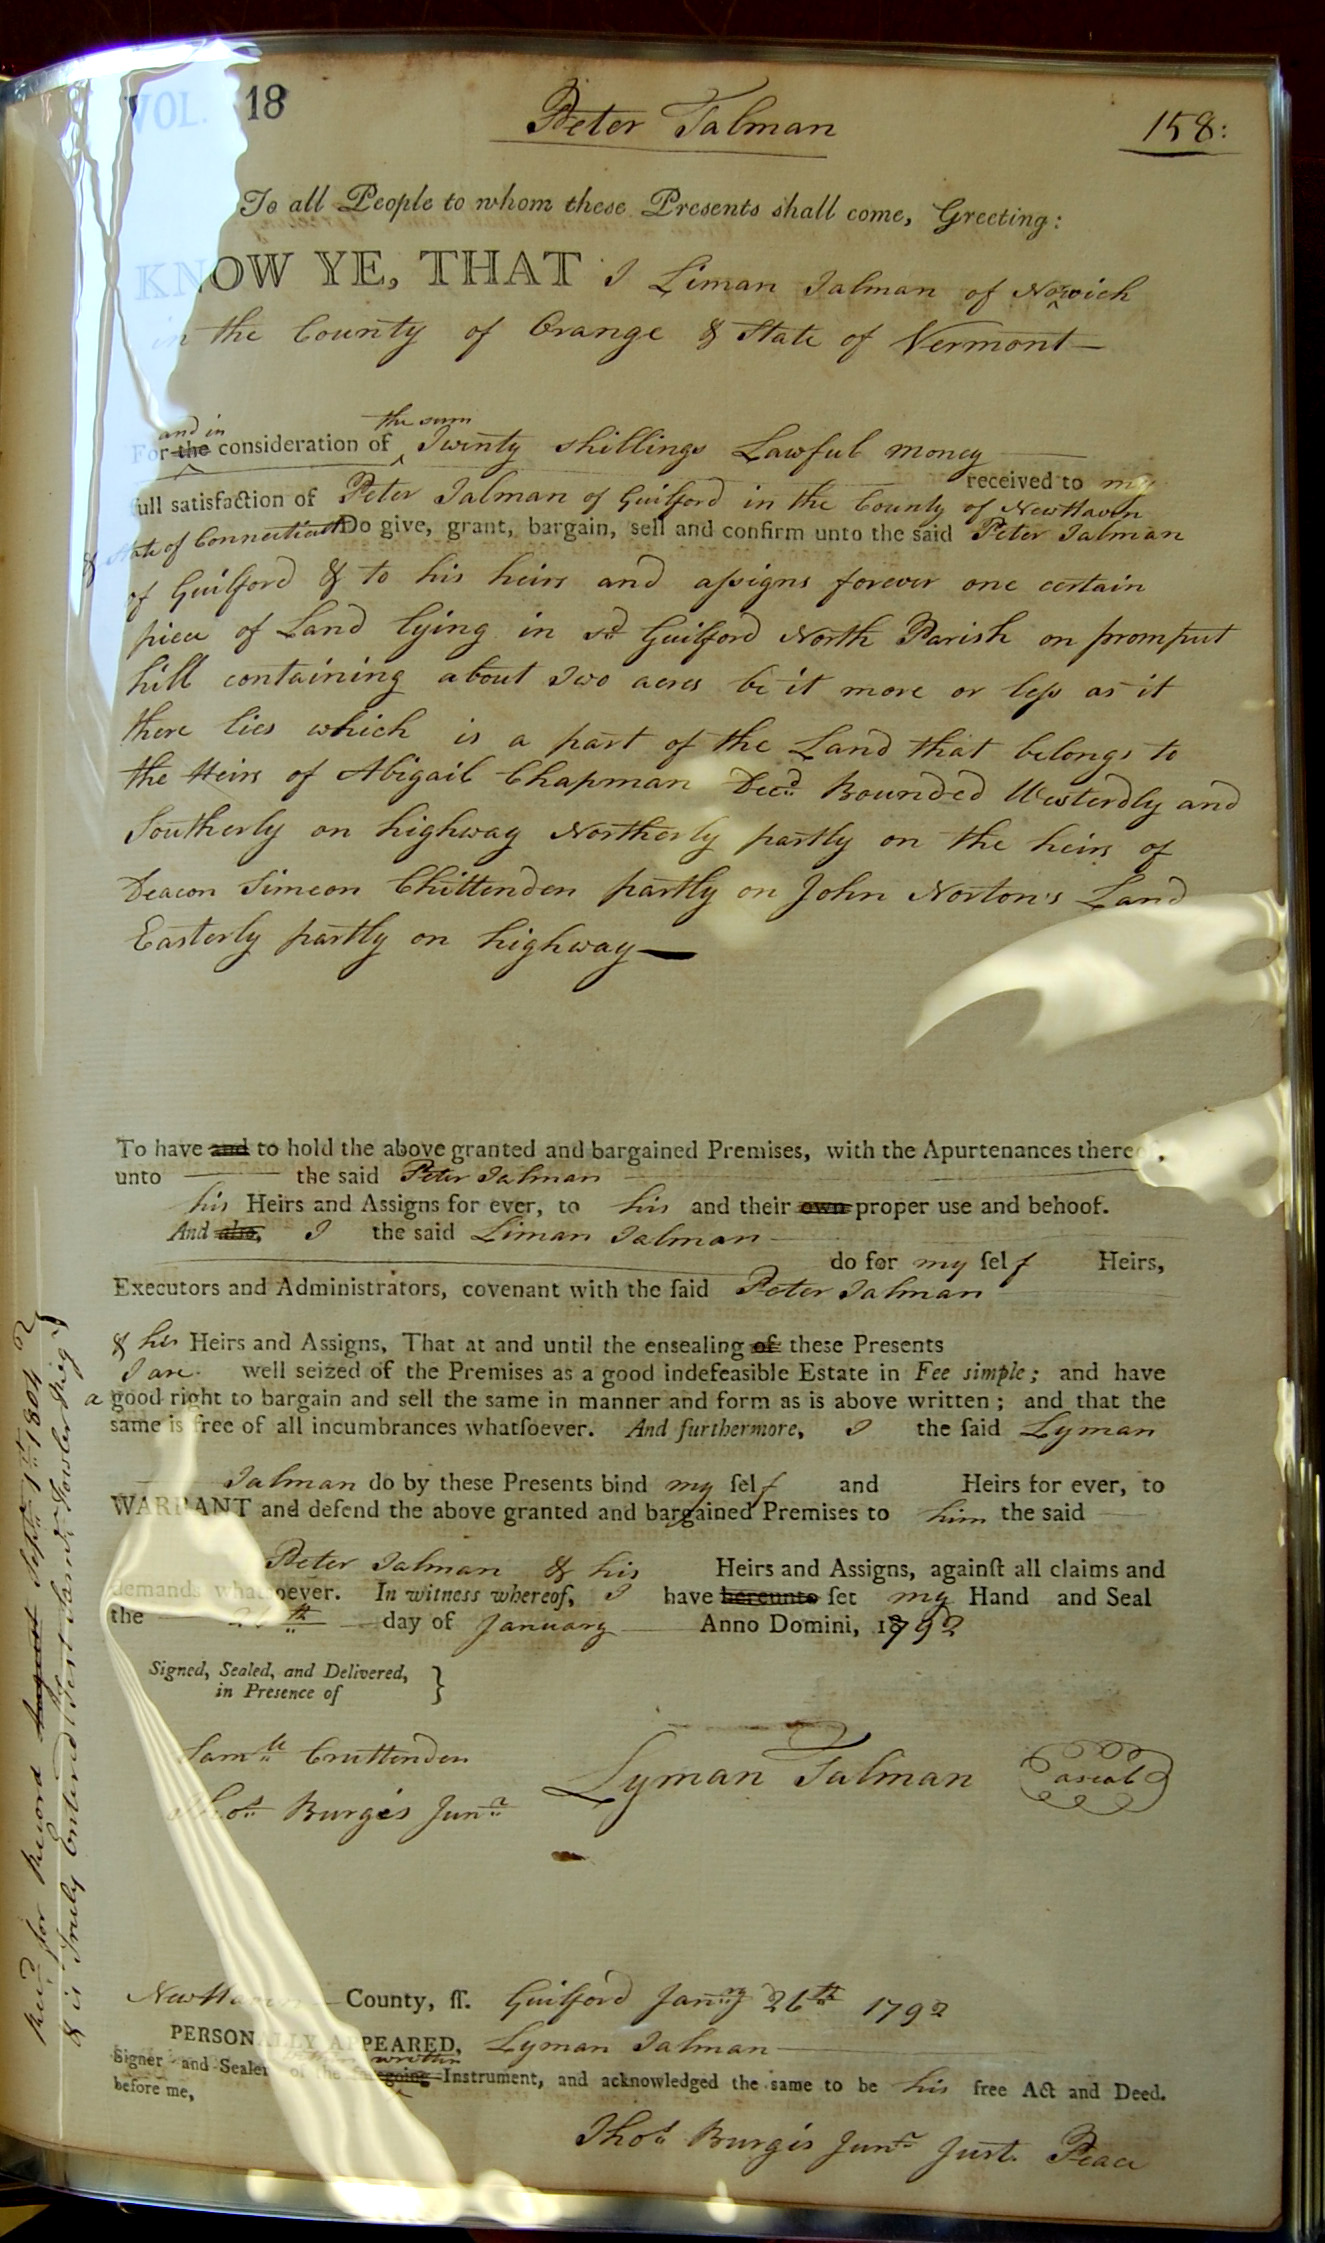 VOL. 18
Peter Talman
158:
To all People to whom these Presents shall come, Greeting:
KNOW YE, THAT I Liman Talman of Norwich
in the County of Orange & State of Vermont—
and in the sum
For the consideration of Twenty shillings Lawful money
received to my
full satisfaction of Peter Talman of Guilford in the County of New Haven
& State of Connecticut Do give, grant, bargain, sell and confirm unto the said Peter Talman
of Guilford & to his heirs and assigns forever one certain
piece of Land lying in sd Guilford North Parish on promput
hill containing about Two acres be it more or less as it
there lies which is a part of the Land that belongs to
the Heirs of Abigail Chapman Decd Bounded Westerdly and
Southerly on highway Northerly partly on the heirs of
Deacon Simeon Chittenden partly on John Norton's Land
Easterly partly on highway—
To have and to hold the above granted and bargained Premises, with the Apurtenances
unto the said Peter Talman
his Heirs and Assigns for ever, to his and their own proper use and behoof.
And also, I the said Liman Talman
do for my self Heirs,
Executors and Administrators, covenant with the said Peter Talman
& his Heirs and Assigns, That at and until the ensealing of these Presents
I are well seized of the Premises as a good indefeasible Estate in Fee simple; and have
a good right to bargain and sell the same in manner and form as is above written; and that the
same is free of all incumbrances whatsoever. And furthermore, I the said Lyman
Talman do by these Presents bind my self and Heirs for ever, to
WARRANT and defend the above granted and bargained Premises to him the said
Peter Talman & his Heirs and Assigns, against all claims and
demands whatsoever. In witness whereof, I have hereunto set my Hand and Seal
the 26th day of January Anno Domini, 1792
Signed, Sealed, and Delivered,
in Presence of }
Samll Cruttenden
Lyman Talman a seal
Thos Burgis Junr
New Haven County, ss. Guilford Jany 26th 1792
PERSONALLY APPEARED, Lyman Talman
written
Signer and Sealer of the foregoing Instrument, and acknowledged the same to be his free Act and Deed.
before me,
Thos Burgis Junr Just. Peace
Recd for Record August Sept 1st 1804
& is Truly Entered Test Saml Fowler Reg